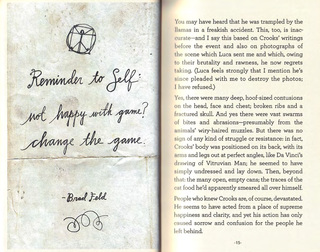 Reminder to Self:
not happy with game?
change the game.
- Brad Feld
You may have heard that he was trampled by the
llamas in a freakish accident. This, too, is inac-
curate—and I say this based on Crooks' writings
before the event and also on photographs of the
scene which Luca sent me and which, owing
to their brutality and rawness, he now regrets
taking. (Luca feels strongly that I mention he's
since pleaded with me to destroy the photos;
I have refused.)
Yes, there were many deep, hoof-sized contusions
on the head, face and chest; broken ribs and a
fractured skull. And yes there were vast swarms
of bites and abrasions—presumably from the
animals' wiry-haired muzzles. But there was no
sign of any kind of struggle or resistance: in fact,
Crooks' body was positioned on its back, with its
arms and legs out at perfect angles, like Da Vinci's
drawing of Vitruvian Man; he seemed to have
simply undressed and lay down. Then, beyond
that: the many open, empty cans; the traces of the
cat food he'd apparently smeared all over himself.
People who knew Crooks are, of course, devastated.
He seems to have acted from a place of supreme
happiness and clarity, and yet his action has only
caused sorrow and confusion for the people he
left behind.